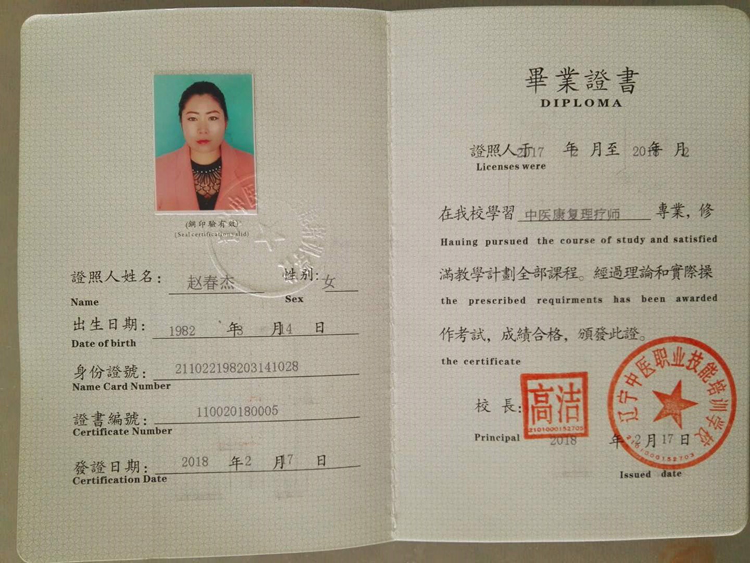 (鋼印驗有效)
(Seal certification valid)
證照人姓名: 赵春杰 性别: 女
Name Sex
出生日期: 1982 年 3 月 14 日
Date of birth
身份證號: 211022198203141028
Name Card Number
證書編號: 110020180005
Certificate Number
發證日期: 2018 年 2 月 17 日
Certification Date
畢業證書
DIPLOMA
證照人于 2017 年 2 月至 2018 年 2 月
Licenses were
在我校學習 中医康复理疗师 專業，修
Hauing pursued the course of study and satisfied
滿教學計劃全部課程。經過理論和實際操
the prescribed requirments has been awarded
作考試，成績合格，頒發此證。
the certificate
校 長: 高洁
2101000152705
Principal
2018 年 2 月 17 日
Issued date
辽宁中医职业技能培训学校
2101000152703